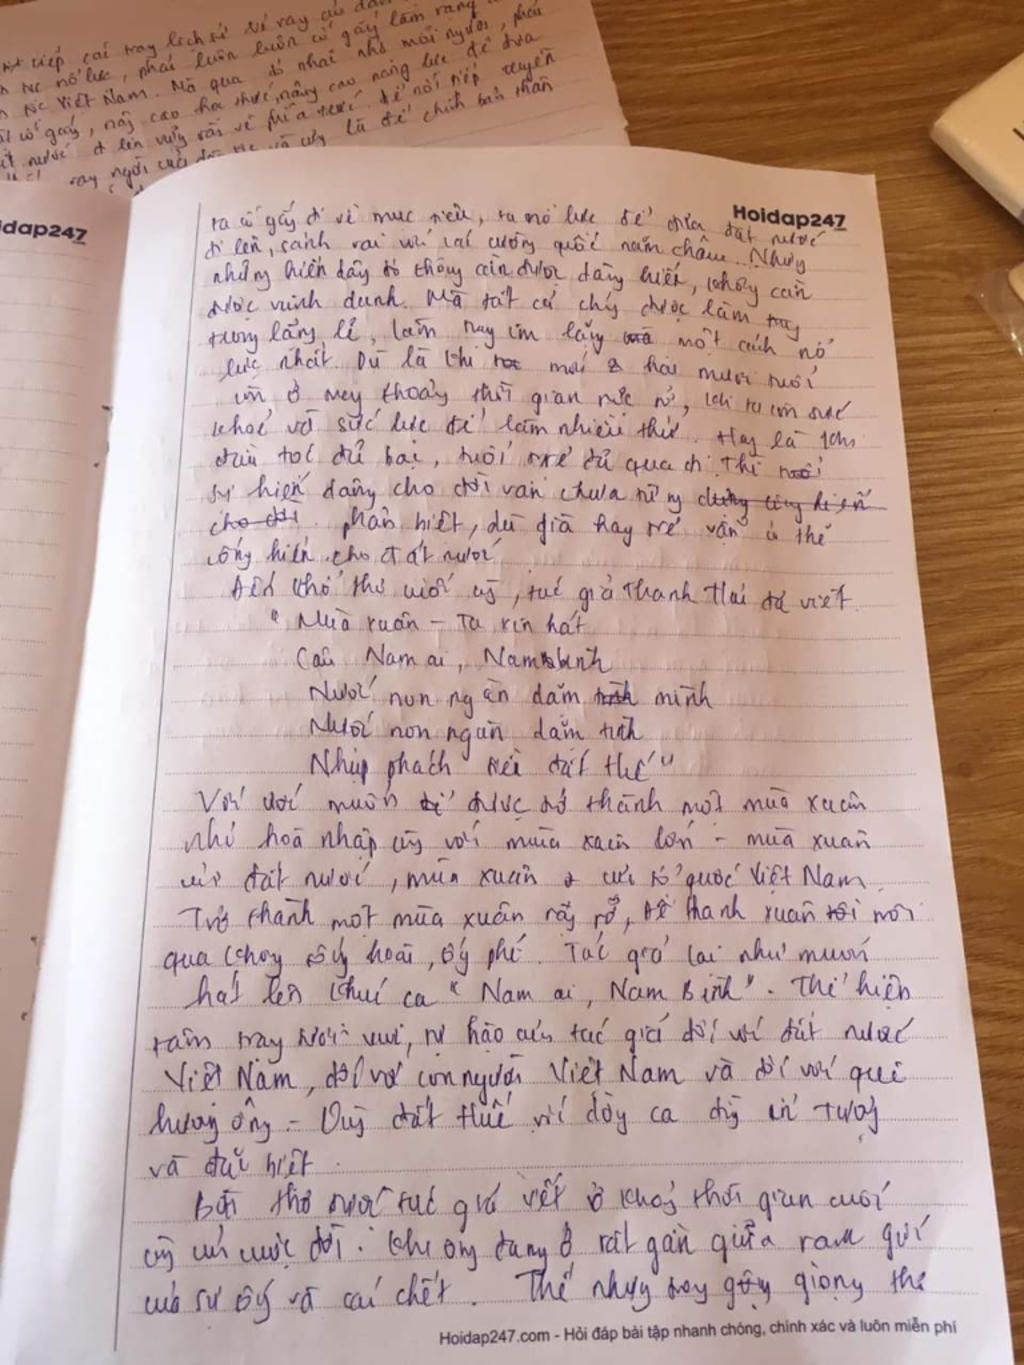 tiếp cái lịch sử
nỗ lực, phải luôn luôn cố gắng làm rạng
Việt Nam. Mà qua đó nhắc nhở mọi người, phải
cố gắng, nâng cao tri thức, nâng cao năng lực để đưa
đi lên vững vãi về phía trước để nối tiếp truyền
là để chính bản thân
dap247
Hoidap247
ta cố gắg đi về mục tiêu, ta nỗ lực để đưa đất nước
đi lên, sánh vai với các cường quốc năm châu. Nhưng
những hiến dâng đó không cần được dâng hiến, không cần
được vinh danh. Mà tất cả chỉ được làm
trong lặng lẽ, làm im lặng một cách nỗ
lực nhất. Dù là khi mới hai mươi tuổi
còn ở thời gian rực rỡ, khi ta còn sức
khoẻ và sức lực để làm nhiều thứ. Hay là khi
đầu tóc đã bạc, tuổi trẻ đã qua đi. Thì
sự hiến dâng cho đời vẫn chưa từng dừng cống hiến
cho đời. phân biệt, dù già hay trẻ vẫn có thể
cống hiến cho đất nước
Đến khổ thơ cuối cùg, tác giả Thanh Hải đã viết.
" Mùa xuân – Ta xin hát
Câu Nam ai, Nam bình
Nước non ngàn dặm mình
Nước non ngàn dặm tình
Nhịp phách đất Huế"
Với ước muốn được trở thành một mùa xuân
nhỏ hoà nhập cùg với mùa xuân lớn – mùa xuân
của đất nước, mùa xuân của tổ quốc Việt Nam
Trở thành một mùa xuân rạg rỡ, để thanh xuân trôi
qua không uổg hoài, uổg phí. Tác giả lại như muốn
hát lên khúc ca " Nam ai, Nam Bình". Thể hiện
tâm trạng tươi vui, tự hào của tác giả đối với đất nước
Việt Nam, đối với con người Việt Nam và đối với quê
hương ông – Vùg đất Huế với dòng ca ấn tượng
và đặc biệt.
Bài thơ được tác giả viết ở khoảg thời gian cuối
cùg của cuộc đời. Khi ông đang ở rất gần giữa ranh giới
của sự sống và cái chết. Thế nhưng trong giọng thơ
Hoidap247.com - Hỏi đáp bài tập nhanh chóng, chính xác và luôn miễn phí